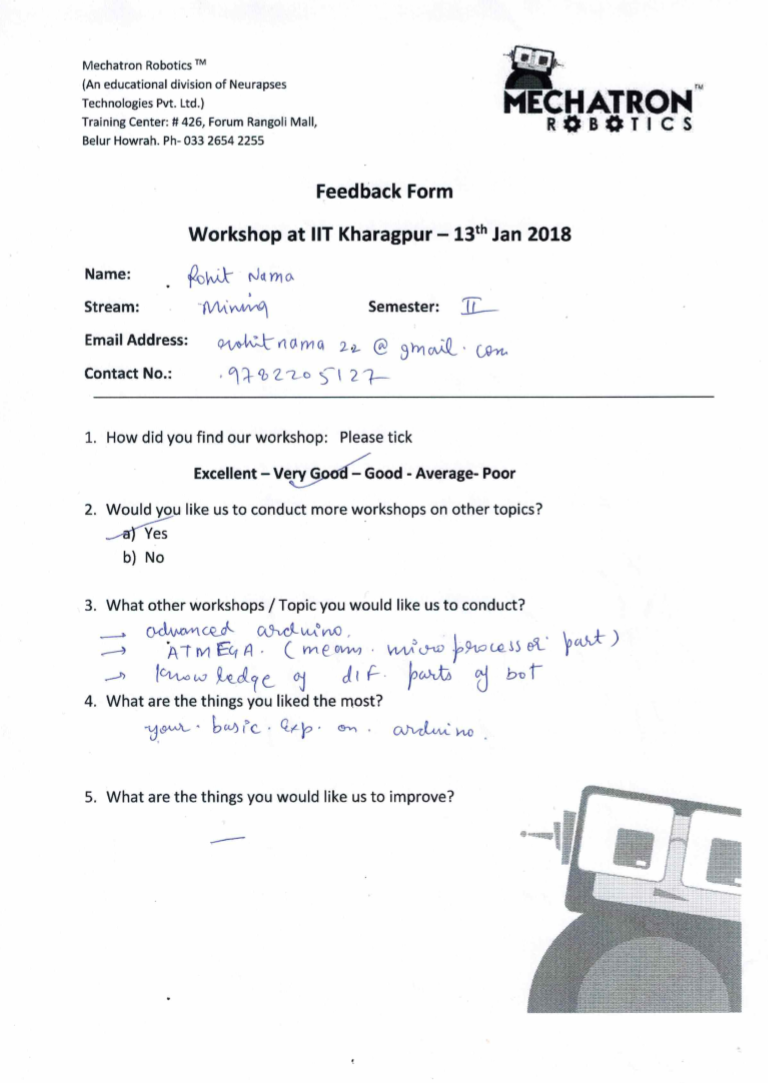 Mechatron Robotics ™
(An educational division of Neurapses
Technologies Pvt. Ltd.)
Training Center: # 426, Forum Rangoli Mall,
Belur Howrah. Ph- 033 2654 2255
MECHATRON™
ROBOTICS
Feedback Form
Workshop at IIT Kharagpur – 13th Jan 2018
Name: Rohit Nama
Stream: Mining Semester: II
Email Address: rohitnama22@gmail.com
Contact No.: 9782205127
1. How did you find our workshop: Please tick
Excellent – Very Good – Good - Average- Poor
2. Would you like us to conduct more workshops on other topics?
a) Yes
b) No
3. What other workshops / Topic you would like us to conduct?
→ advanced arduino.
→ ATMEGA. (means. microprocessor part)
→ knowledge of dif. parts of bot
4. What are the things you liked the most?
your. basic. exp. on. arduino.
5. What are the things you would like us to improve?
—